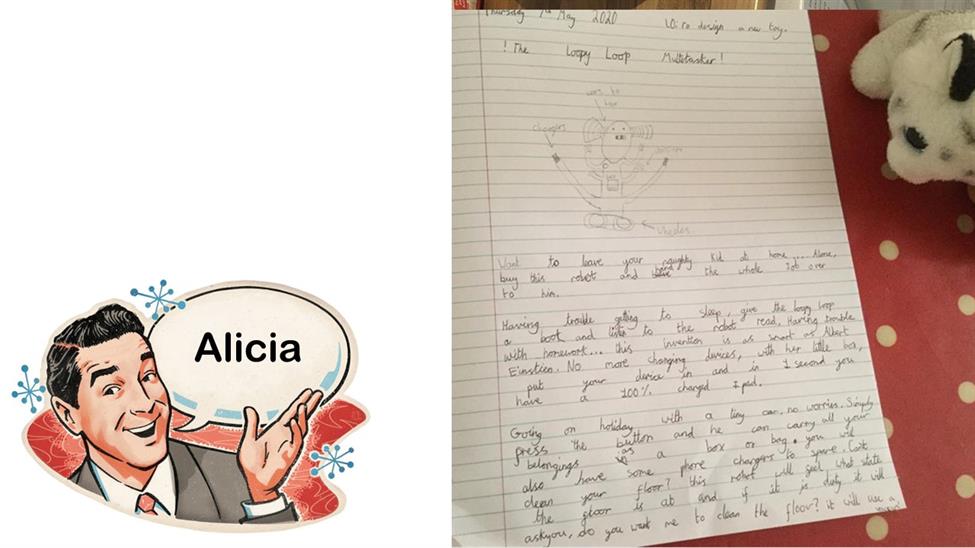 Alicia
Thursday 7th May 2020
LO: To design a new toy.
! The Loopy Loop Multitasker !
chargers
wheels
Want to leave your naughty kid at home .... Alone,
buy this robot and hand the whole Job over
to him.
Having trouble getting to sleep, give the loopy loop
a book and listen to the robot read. Having trouble
with homework... this invention is as smart as Albert
Einstien. No more changing devices, with her little box,
put your device in and in 1 second you
have a 100% charged I pad.
Going on holiday with a tiny car, no worries. Simply
press the button and he can carry all your
belongings as a box or bag. you will
also have some phone chargers to spare. Can't
clean your floor? this robot will feel what state
the floor is at and if it is dirty it will
askyou, do you want me to clean the floor? it will use a